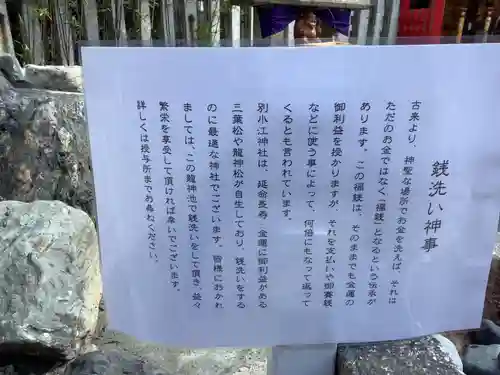 銭洗い神事
古来より、神聖な場所でお金を洗えば、それは
ただのお金ではなく「福銭」となるという伝承が
あります。この福銭は、そのままでも金運の
御利益を授かりますが、それを支払いや御賽銭
などに使う事によって、何倍にもなって返って
くるとも言われています。
別小江神社は、延命長寿、金運に御利益がある
三葉松や龍神松が自生しており、銭洗いをする
のに最適な神社でございます。皆様におかれ
ましては、この龍神池で銭洗いをして頂き、益々
繁栄を享受して頂ければ幸いでございます。
詳しくは授与所までお尋ねください。